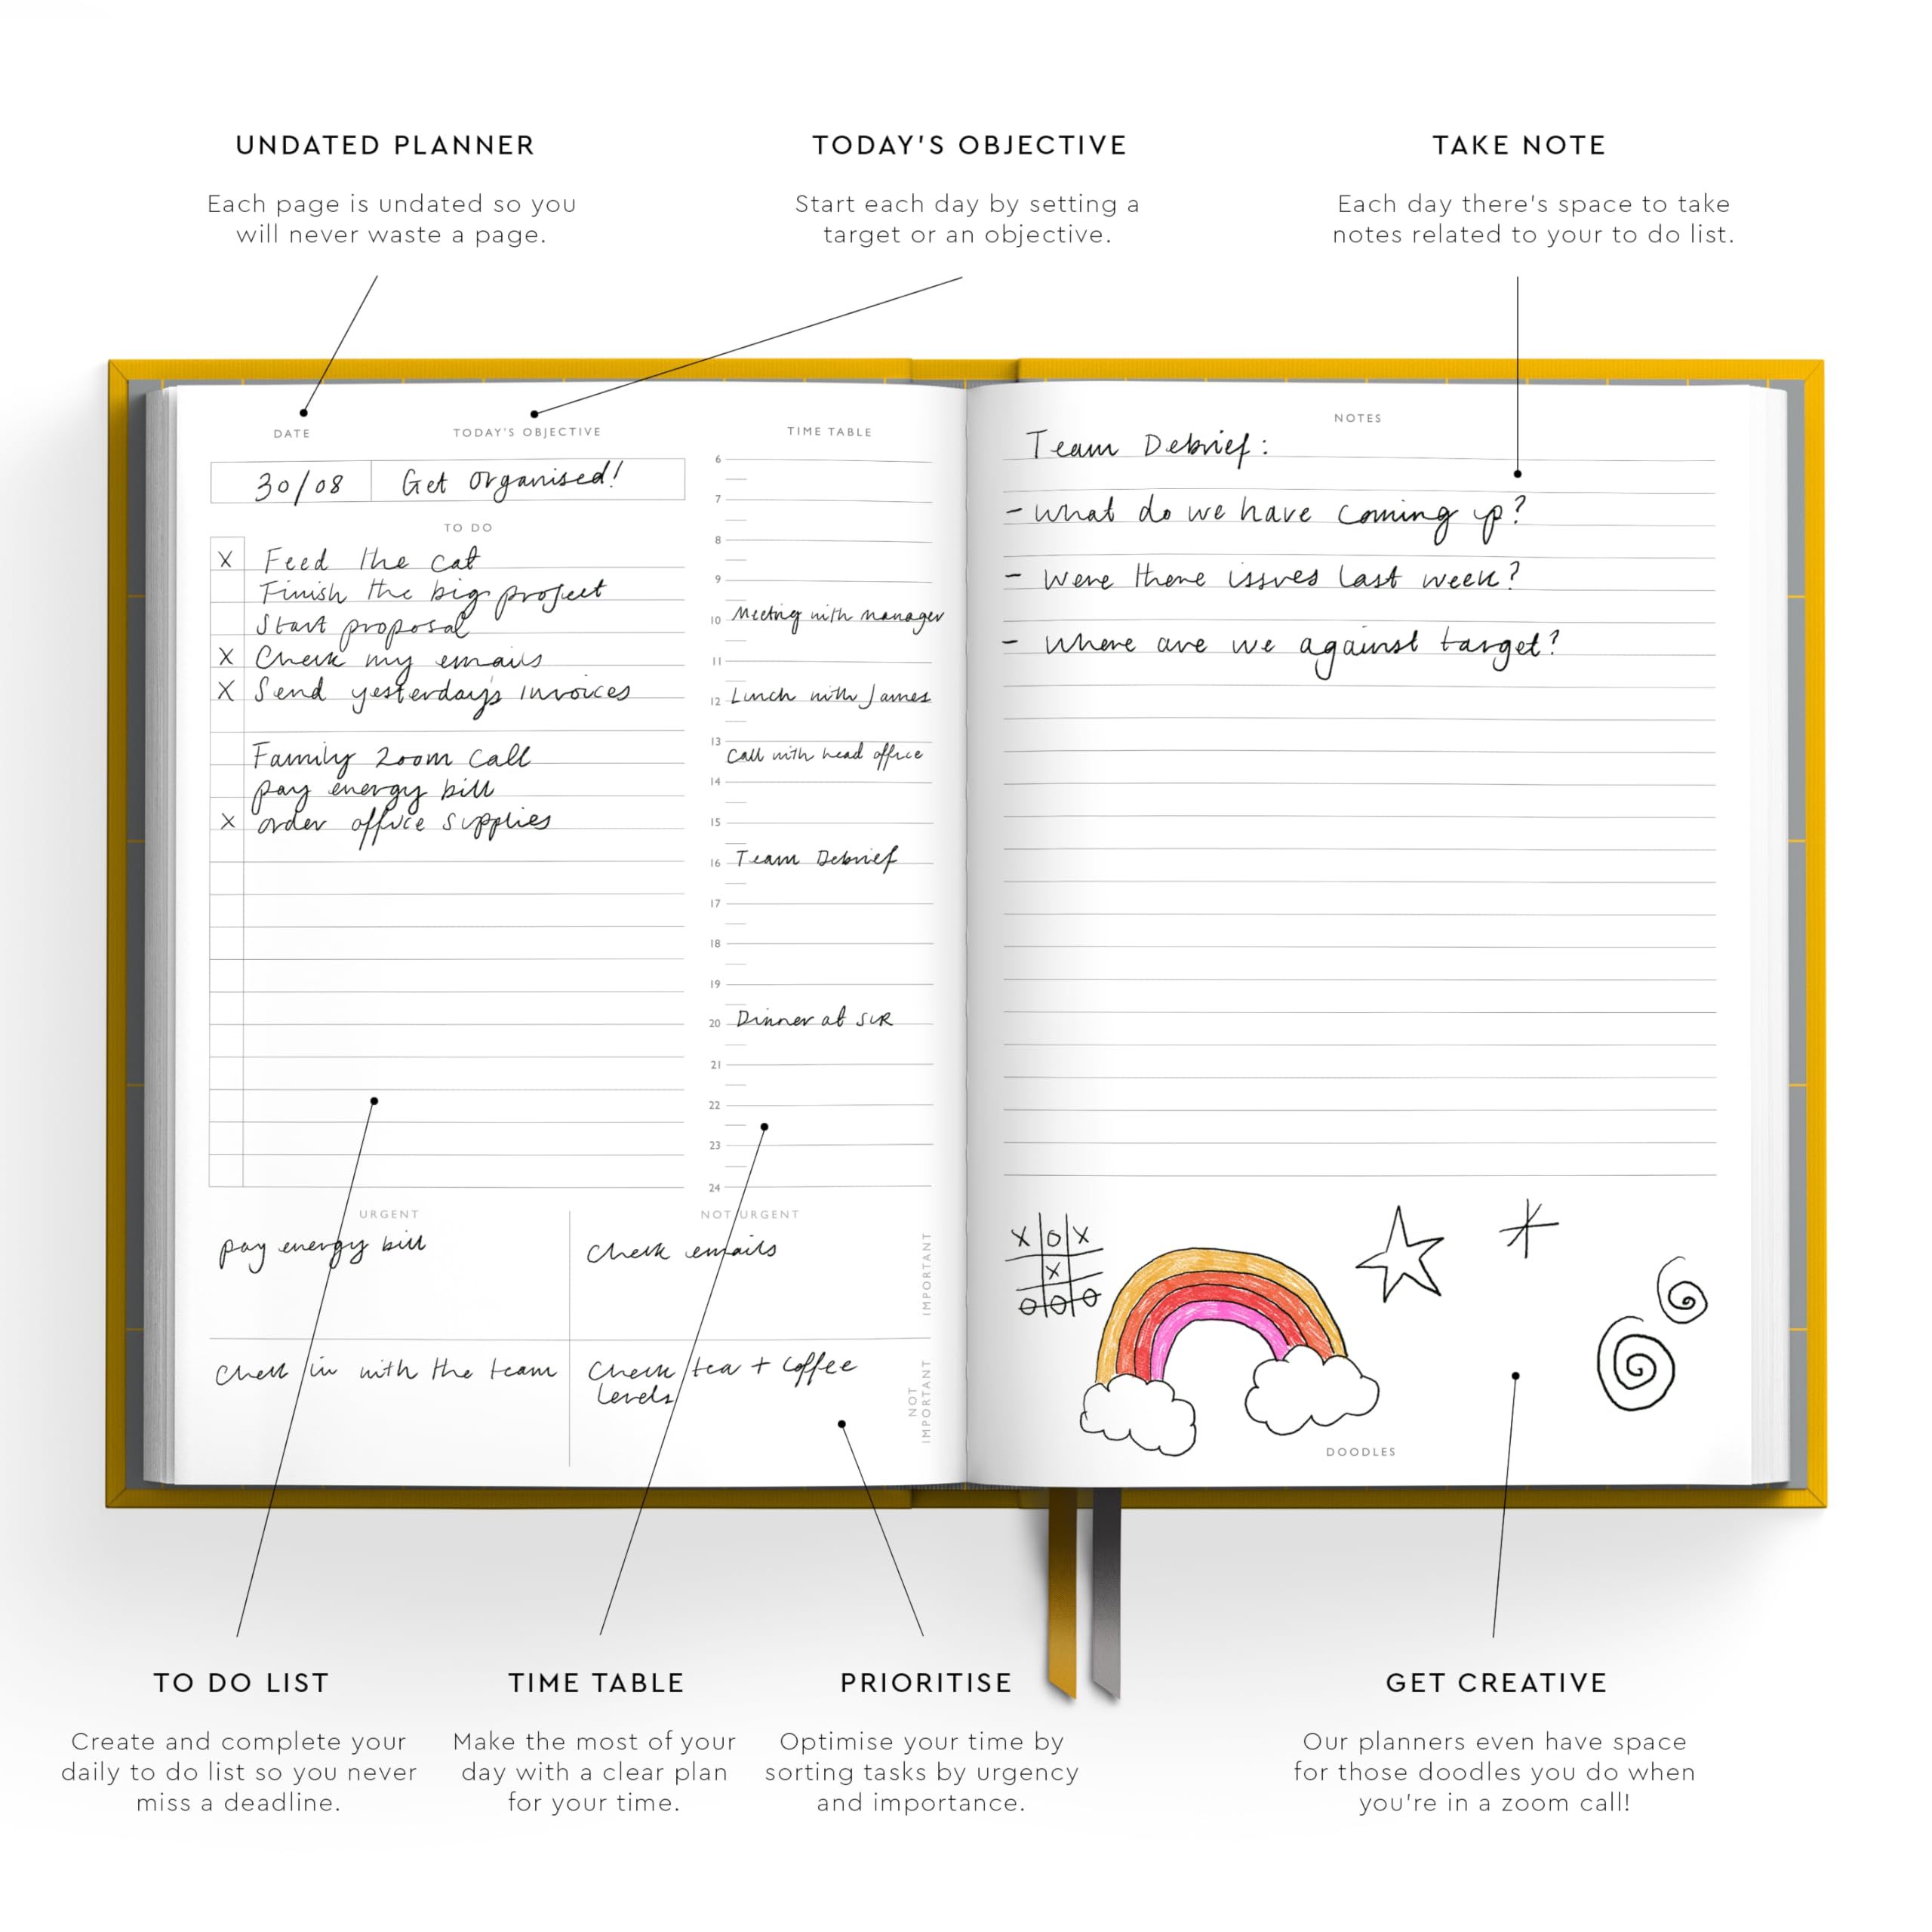 UNDATED PLANNER
Each page is undated so you
will never waste a page.
TODAY'S OBJECTIVE
Start each day by setting a
target or an objective.
TAKE NOTE
Each day there's space to take
notes related to your to do list.
DATE
TODAY'S OBJECTIVE
30/08
Get Organised!
TO DO
X Feed the cat
Finish the big project
Start proposal
X Check my emails
X Send yesterday's invoices
Family Zoom Call
pay energy bill
X order office supplies
TIME TABLE
6
7
8
9
10 Meeting with manager
11
12 Lunch with James
13
Call with head office
14
15
16 Team Debrief
17
18
19
20 Dinner at SUR
21
22
23
24
URGENT
NOT URGENT
pay energy bill
Check emails
IMPORTANT
Check in with the team
Check tea + coffee
levels
NOT
IMPORTANT
NOTES
Team Debrief:
- what do we have coming up?
- Were there issues last week?
- Where are we against target?
X O X
X
O O O
DOODLES
TO DO LIST
Create and complete your
daily to do list so you never
miss a deadline.
TIME TABLE
Make the most of your
day with a clear plan
for your time.
PRIORITISE
Optimise your time by
sorting tasks by urgency
and importance.
GET CREATIVE
Our planners even have space
for those doodles you do when
you're in a zoom call!